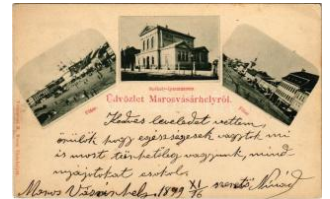 Székely-iparmuzeum
Főtér
Főtér
Üdvözlet Marosvásárhelyről.
Kedves leveledet vettem,
örülök hogy egészségesek vagytok mi
is most tűrhetőleg vagyunk, mind
nyájatokat csókol
Maros Vásárhely 1899 XI/16 szerető Árpád